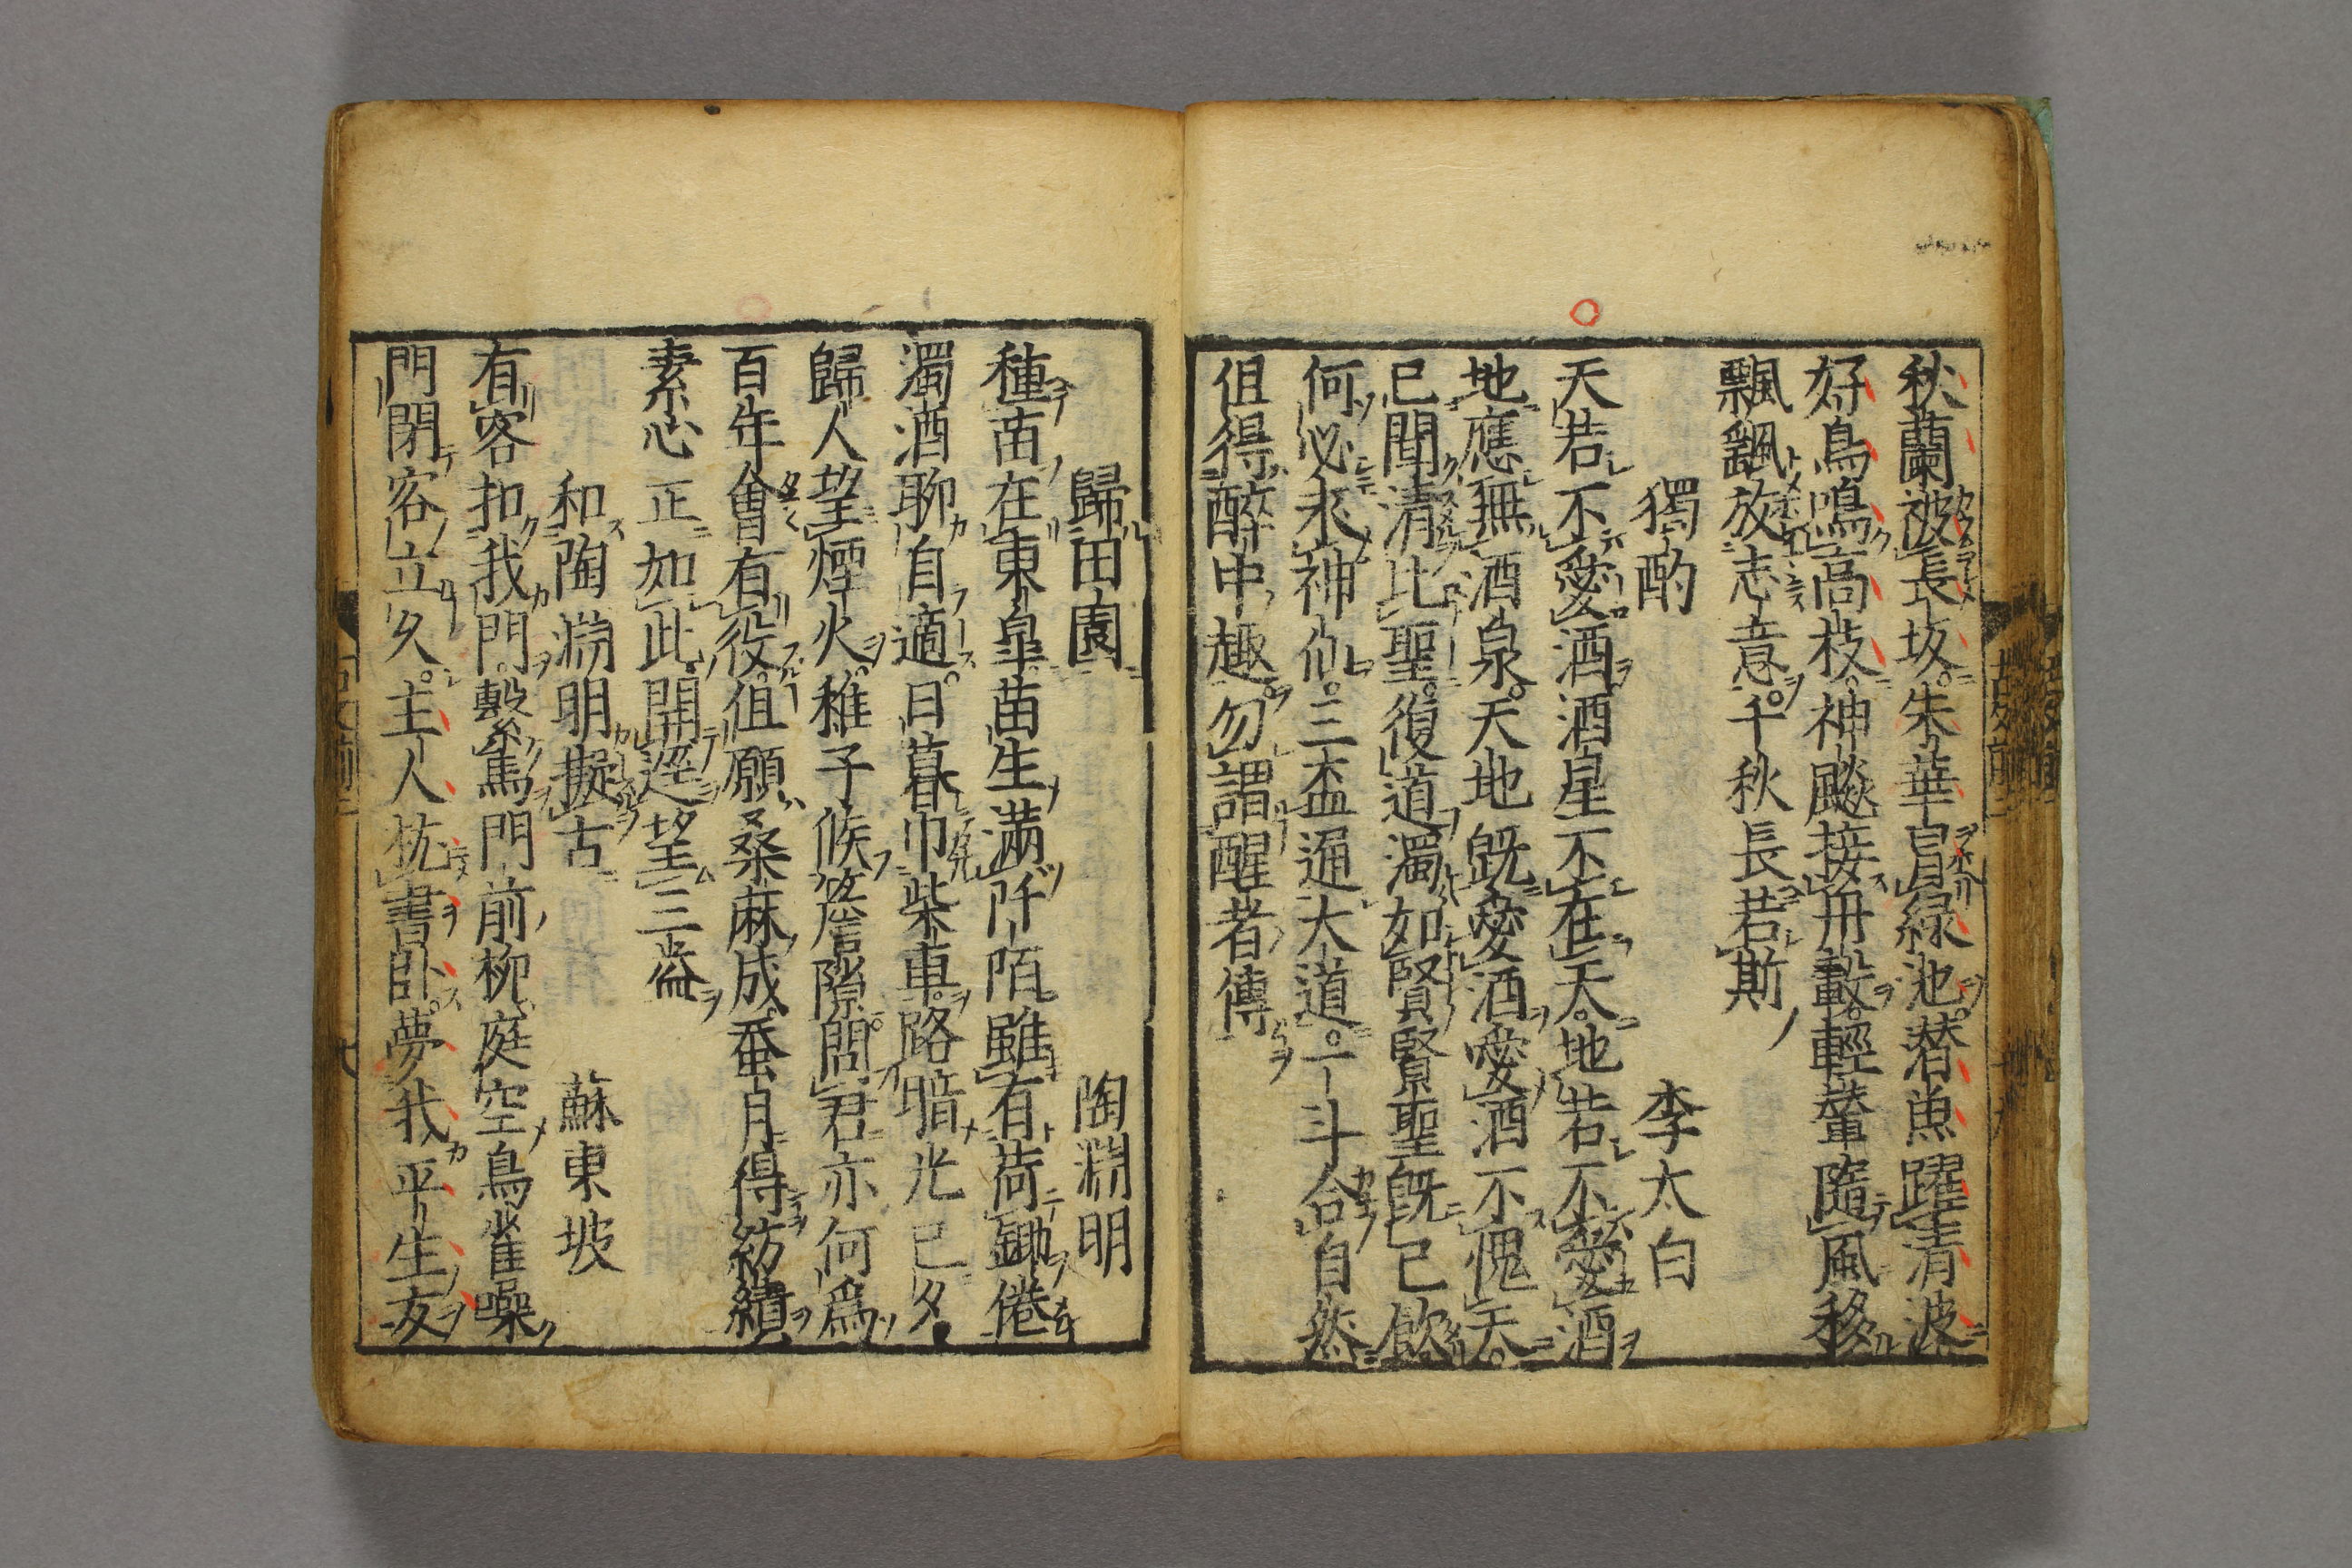 秋蘭被長坂朱華冒綠池潜魚躍清波
好鳥鳴高枝神飈接丹轂輕輦隨風移
飄颻放志意千秋長若斯
獨酌 李太白
天若不愛酒酒星不在天地若不愛酒
地應無酒泉天地既愛酒愛酒不愧天
已聞清比聖復道濁如賢賢聖既已飲
何必求神仙三盃通大道一斗合自然
但得醉中趣勿謂醒者傳
歸田園 陶淵明
種苗在東皐苗生滿阡陌雖有荷鋤倦
濁酒聊自適日暮巾柴車路暗光已夕
歸人望煙火稚子候簷隙問君亦何爲
百年會有役但願桑麻成蚕月得紡績
素心正如此開逕望三益
和陶淵明擬古 蘇東坡
有客扣我門繫馬門前柳庭空鳥雀噪
門閉客立久主人枕書臥夢我平生友